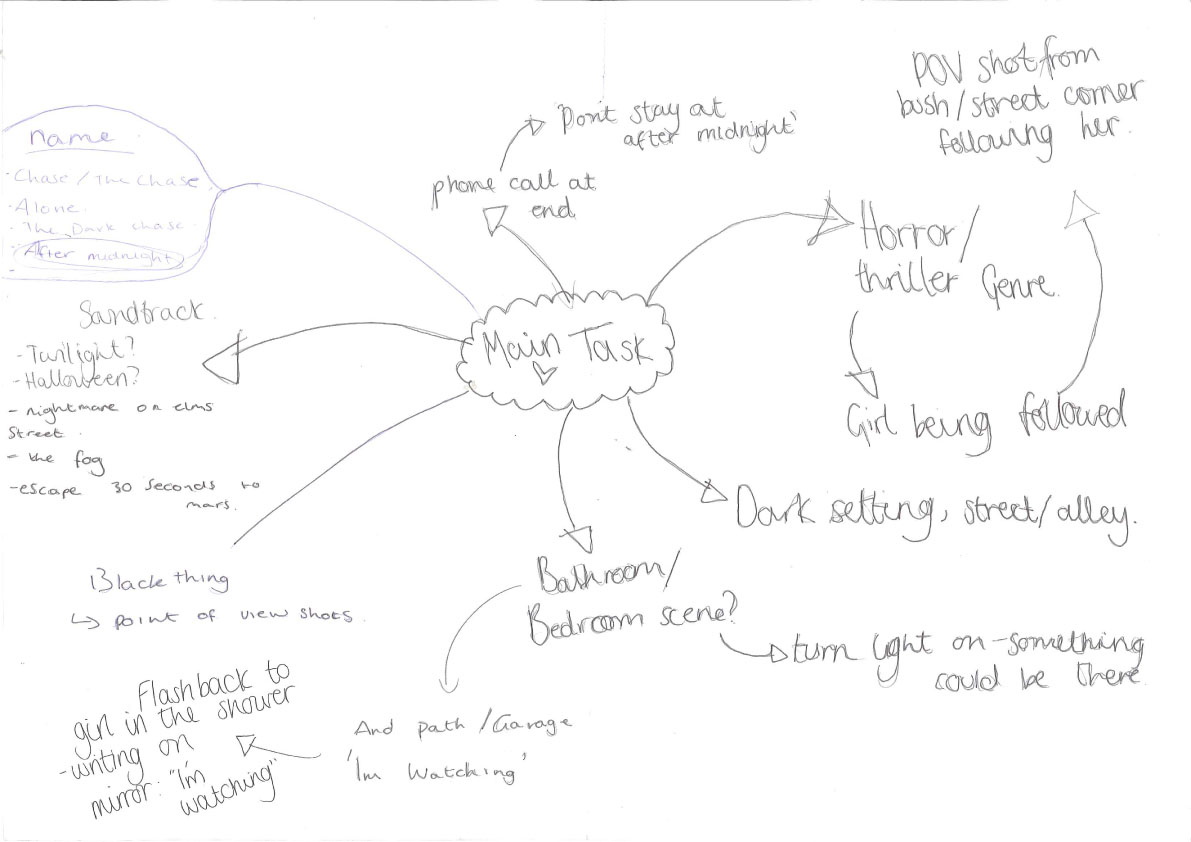 Main Task
name
- Chase / The Chase
- Alone.
- The Dark chase.
- After midnight
-
phone call at
end
'Don't stay at
after midnight'
Horror/
thriller Genre.
Girl being followed
POV shot from
bush/street corner
following her.
Dark setting, street/alley.
Bathroom/
Bedroom scene?
turn light on - something
could be there
And path/Garage
'Im Watching'
Flashback to
girl in the shower
-writing on
mirror: "I'm
watching"
Black thing
↳ point of view shots.
Sandtrack.
- Twilight?
- Halloween?
- nightmare on elms
Street.
- the fog
- escape 30 seconds to
mars.